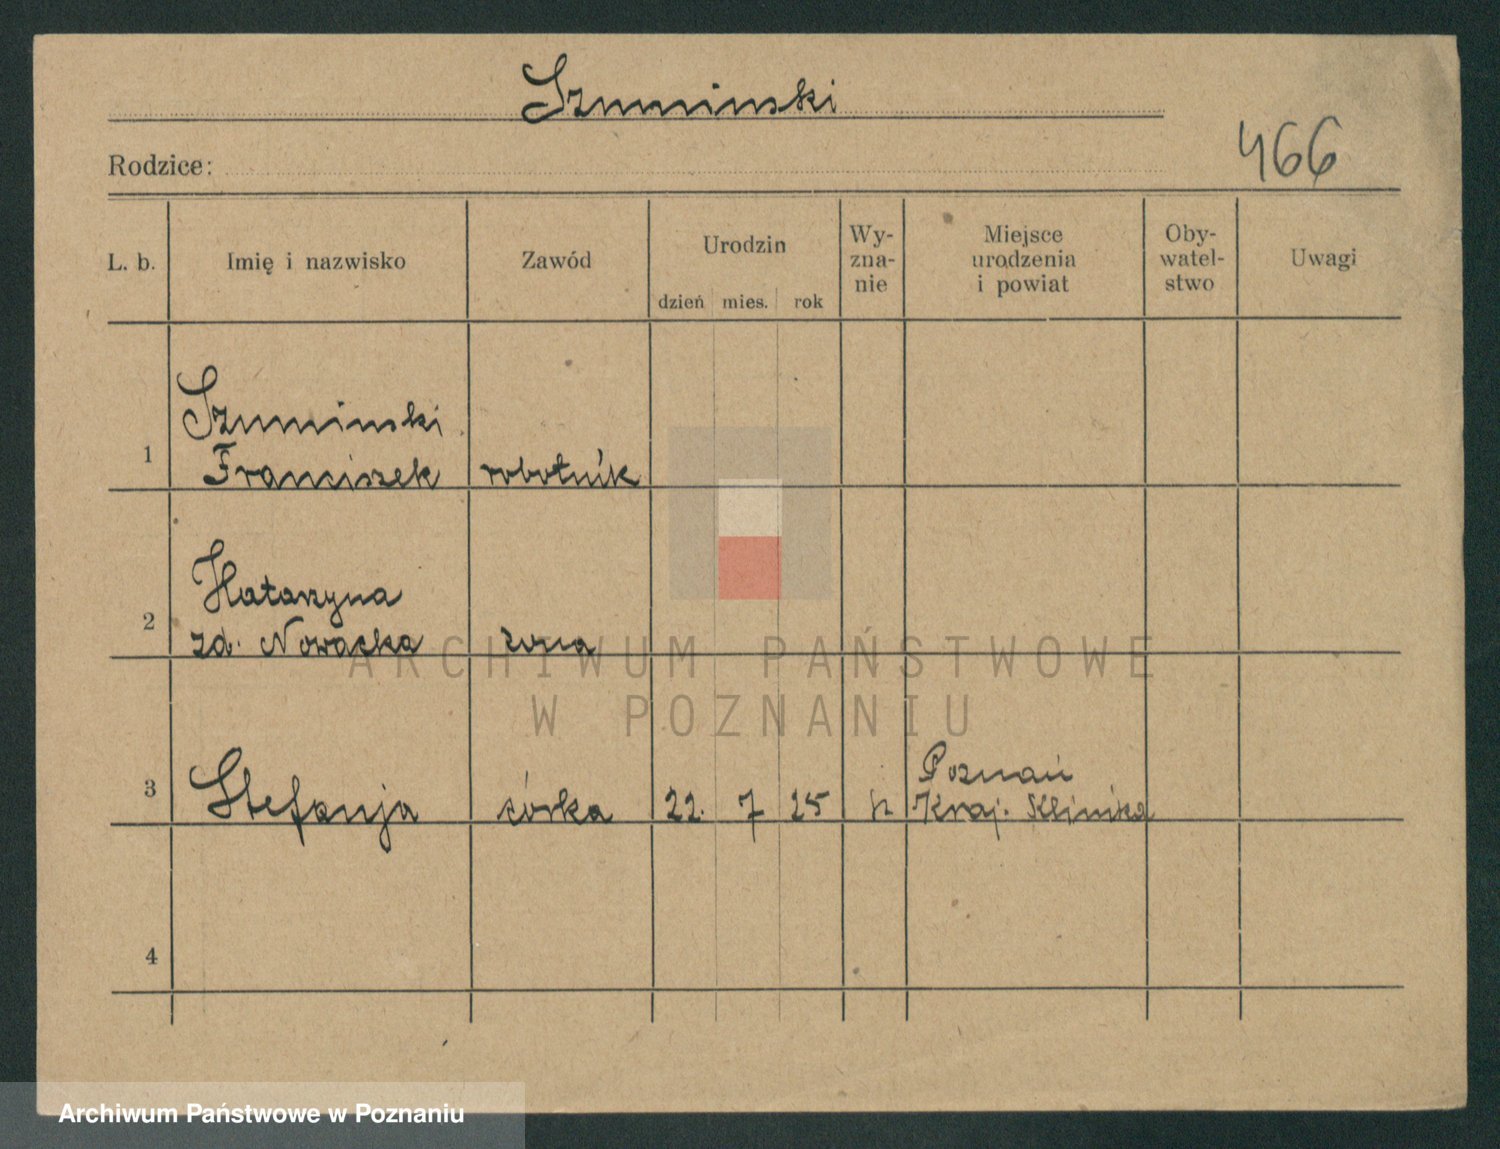 Szuminski
466
Rodzice:
L. b.
Imię i nazwisko
Zawód
Urodzin
dzień mies. rok
Wy-
zna-
nie
Miejsce
urodzenia
i powiat
Oby-
watel-
stwo
Uwagi
1
Szuminski
Franciszek
robotnik
2
Katarzyna
zd. Nowacka
żona
3
Stefanja
córka
22. 7 25
k
Poznań
Kraj. Klinika
4
ARCHIWUM PAŃSTWOWE
W POZNANIU
Archiwum Państwowe w Poznaniu